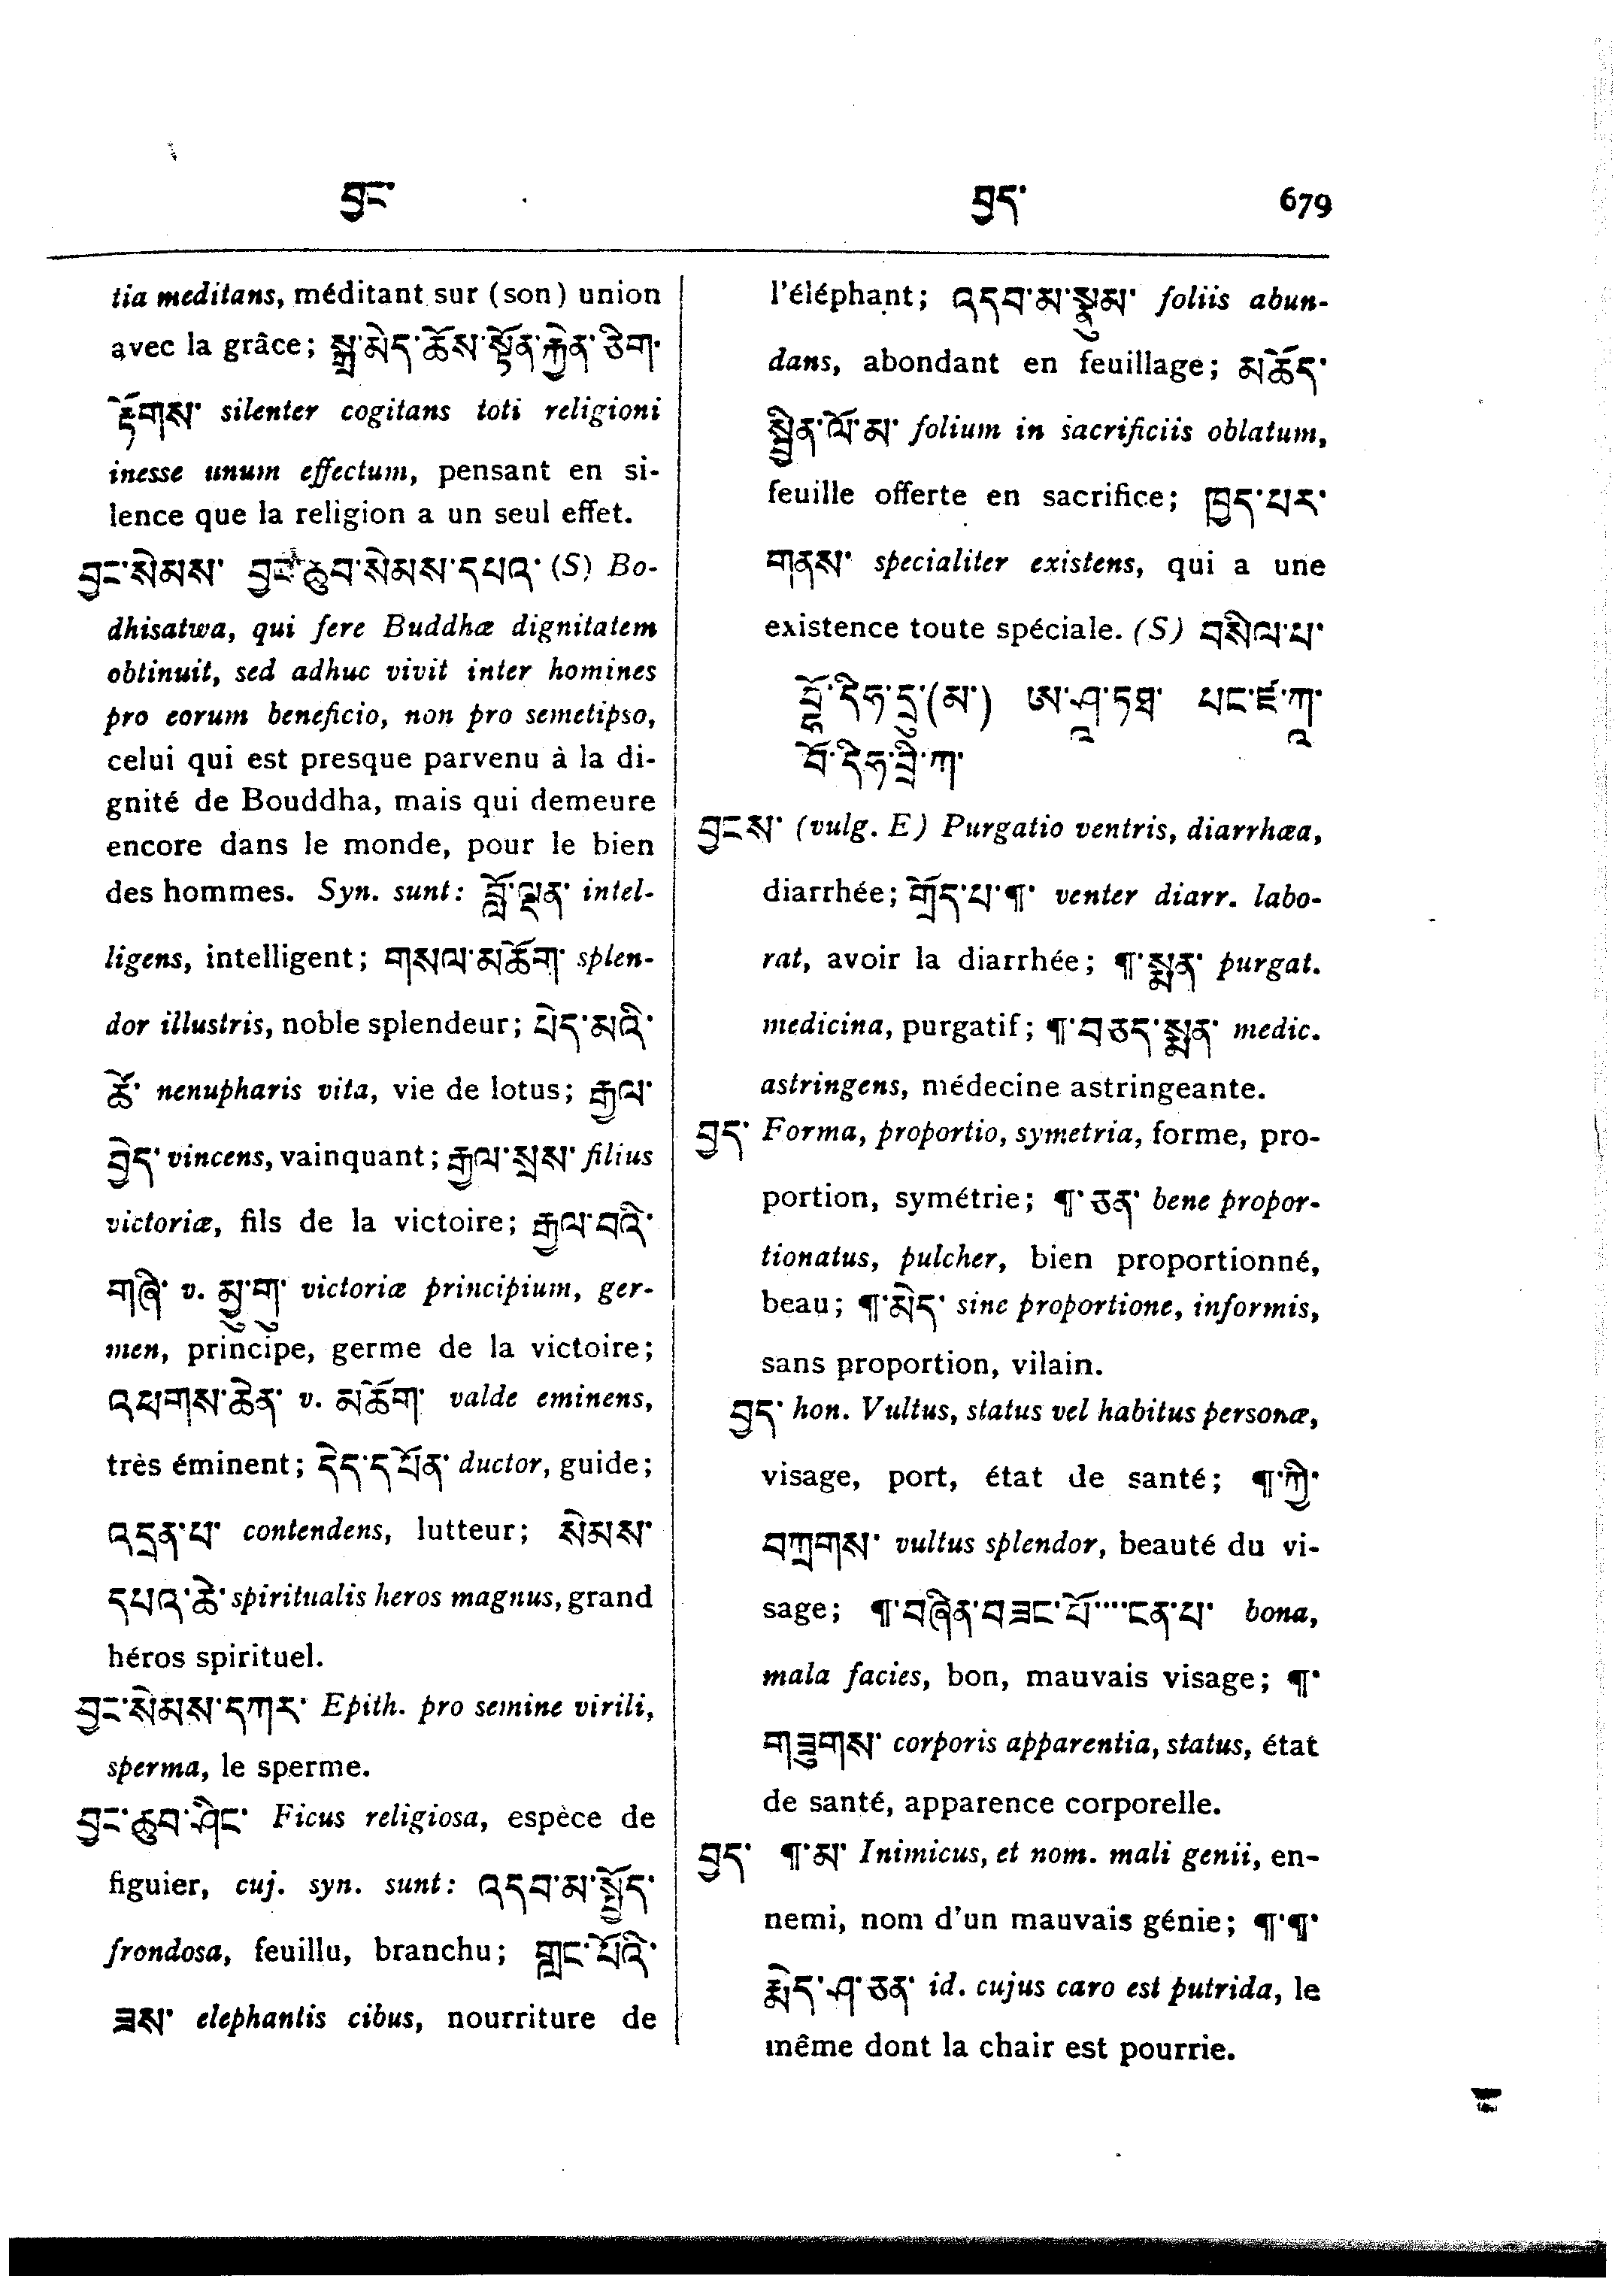 བྱང་
བྱད་ 679
tia meditans, méditant sur (son) union
avec la grâce; སྒྲ་མེད་ཆོས་སྟོན་རྐྱེན་ཅིག་
རྟོགས་ silenter cogitans toti religioni
inesse unum effectum, pensant en si-
lence que la religion a un seul effet.
བྱང་སེམས་ བྱང་ཆུབ་སེམས་དཔའ་ (S) Bo-
dhisatwa, qui fere Buddhæ dignitatem
obtinuit, sed adhuc vivit inter homines
pro eorum beneficio, non pro semetipso,
celui qui est presque parvenu à la di-
gnité de Bouddha, mais qui demeure
encore dans le monde, pour le bien
des hommes. Syn. sunt: བློ་ལྡན་ intel-
ligens, intelligent; གསལ་མཆོག་ splen-
dor illustris, noble splendeur; པེད་མའི་
ཚོ་ nenupharis vita, vie de lotus; རྒྱལ་
བྱེད་ vincens, vainquant; རྒྱལ་སྲས་ filius
victoriæ, fils de la victoire; རྒྱལ་བའི་
གཞི་ v. མྱུ་གུ་ victoriæ principium, ger-
men, principe, germe de la victoire;
འཕགས་ཆེན་ v. མཆོག་ valde eminens,
très éminent; དེད་དཔོན་ ductor, guide;
འདྲན་པ་ contendens, lutteur; སེམས་
དཔའ་ཆེ་ spiritualis heros magnus, grand
héros spirituel.
བྱང་སེམས་དཀར་ Epith. pro semine virili,
sperma, le sperme.
བྱང་ཆུབ་ཤིང་ Ficus religiosa, espèce de
figuier, cuj. syn. sunt: འདབ་མ་སྤྱོད་
frondosa, feuillu, branchu; གླང་པོའི་
ཟས་ elephantis cibus, nourriture de
l'éléphant; འདབ་མ་སྣུམ་ foliis abun-
dans, abondant en feuillage; མཆོད་
སྦྱིན་ལོ་མ་ folium in sacrificiis oblatum,
feuille offerte en sacrifice; ཁྱད་པར་
གནས་ specialiter existens, qui a une
existence toute spéciale. (S) བསིལ་པ་
(མ་)
བོ་དིཧ་
བྱངས་ (vulg. E) Purgatio ventris, diarrhæa,
diarrhée; གྲོད་པ་¶་ venter diarr. labo-
rat, avoir la diarrhée; ¶་སྨན་ purgat.
medicina, purgatif; ¶་བཅད་སྨན་ medic.
astringens, médecine astringeante.
བྱད་ Forma, proportio, symetria, forme, pro-
portion, symétrie; ¶་ཅན་ bene propor-
tionatus, pulcher, bien proportionné,
beau; ¶་མེད་ sine proportione, informis,
sans proportion, vilain.
བྱད་ hon. Vultus, status vel habitus personæ,
visage, port, état de santé; ¶་ཀྱི་
བཀྲགས་ vultus splendor, beauté du vi-
sage; ¶་བཞིན་བཟང་པོ་་་་ངན་པ་ bona,
mala facies, bon, mauvais visage; ¶་
གཟུགས་ corporis apparentia, status, état
de santé, apparence corporelle.
བྱད་ ¶་མ་ Inimicus, et nom. mali genii, en-
nemi, nom d'un mauvais génie; ¶་¶་
རྨེད་ཤ་ཅན་ id. cujus caro est putrida, le
même dont la chair est pourrie.